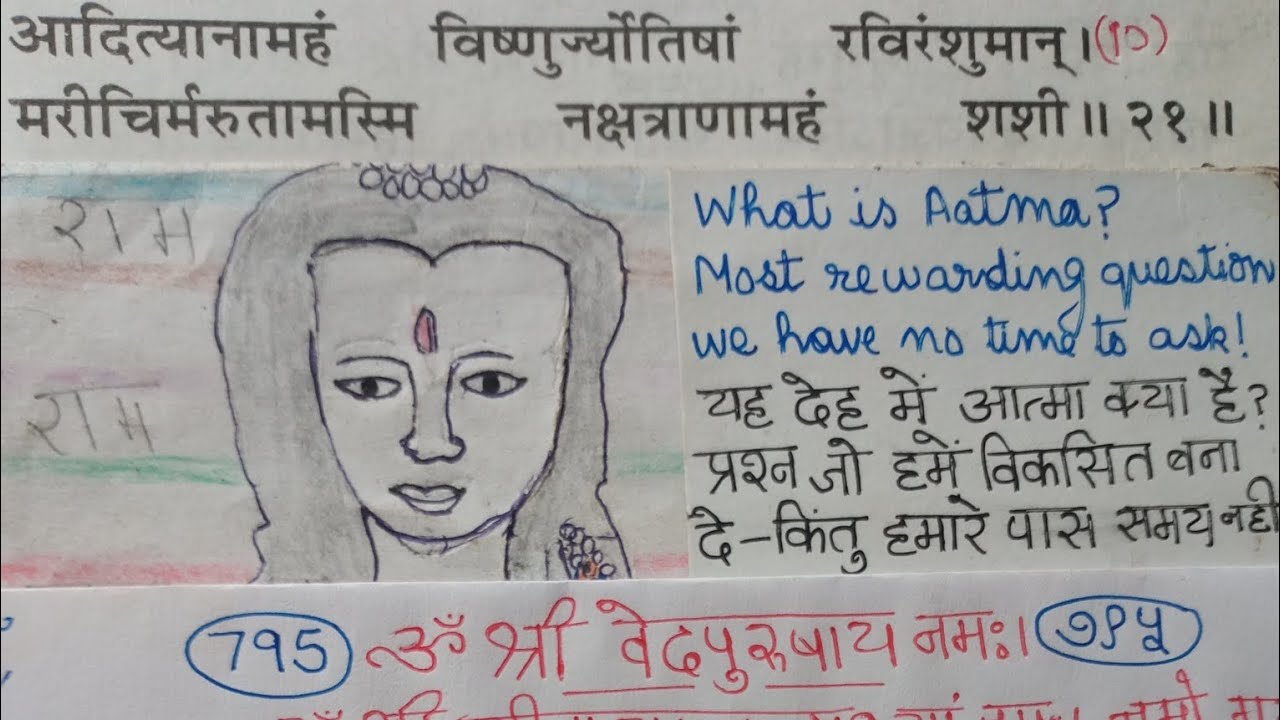 आदित्यानामहं विष्णुर्ज्योतिषां रविरंशुमान्। (१०)
मरीचिर्मरुतामस्मि नक्षत्राणामहं शशी॥ २१॥
राम
राम
What is Aatma?
Most rewarding question
we have no time to ask!
यह देह में आत्मा क्या है?
प्रश्न जो हमें विकसित बना
दे - किंतु हमारे पास समय नही
795 ॐ श्री वेदपुरुषाय नमः। ७९५